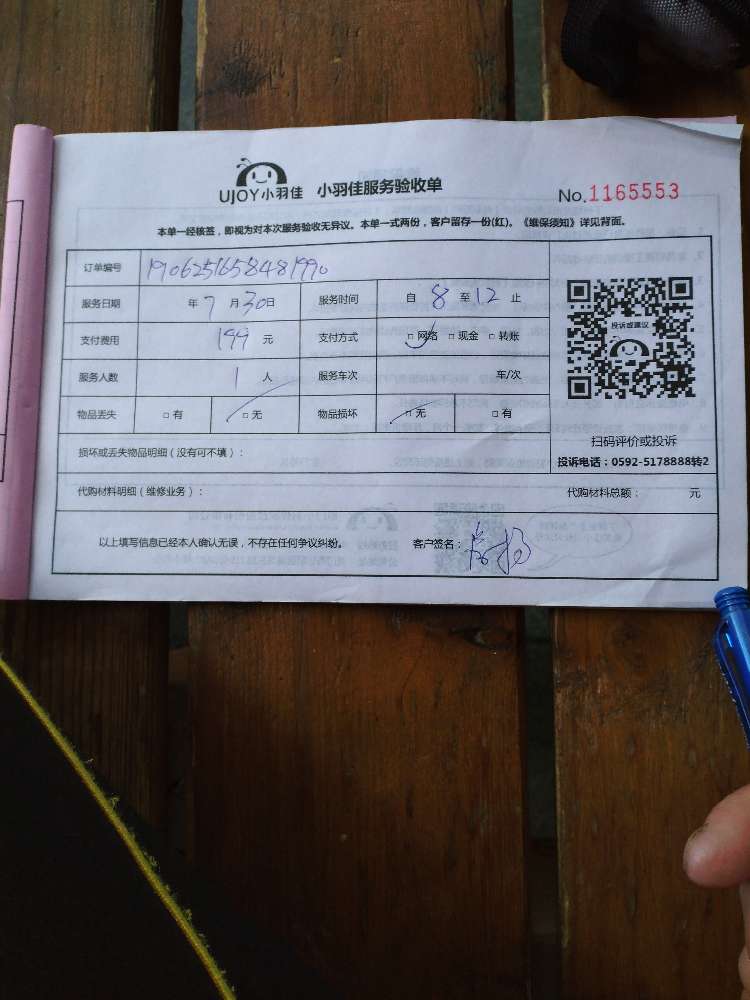 UJOY小羽佳 小羽佳服务验收单
No.1165553
本单一经核签，即视为对本次服务验收无异议。本单一式两份，客户留存一份(红)。《维保须知》详见背面。
订单编号 1906251658481990
服务日期 年 7 月 30 日 服务时间 自 8 至 12 止
支付费用 199 元 支付方式 □ 网络 □ 现金 □ 转账
服务人数 1 人 服务车次 车/次
物品丢失 □ 有 □ 无 物品损坏 □ 无 □ 有
投诉或建议
扫码评价或投诉
投诉电话：0592-5178888转2
损坏或丢失物品明细（没有可不填）：
代购材料明细（维修业务）： 代购材料总额： 元
以上填写信息已经本人确认无误，不存在任何争议纠纷。 客户签名：